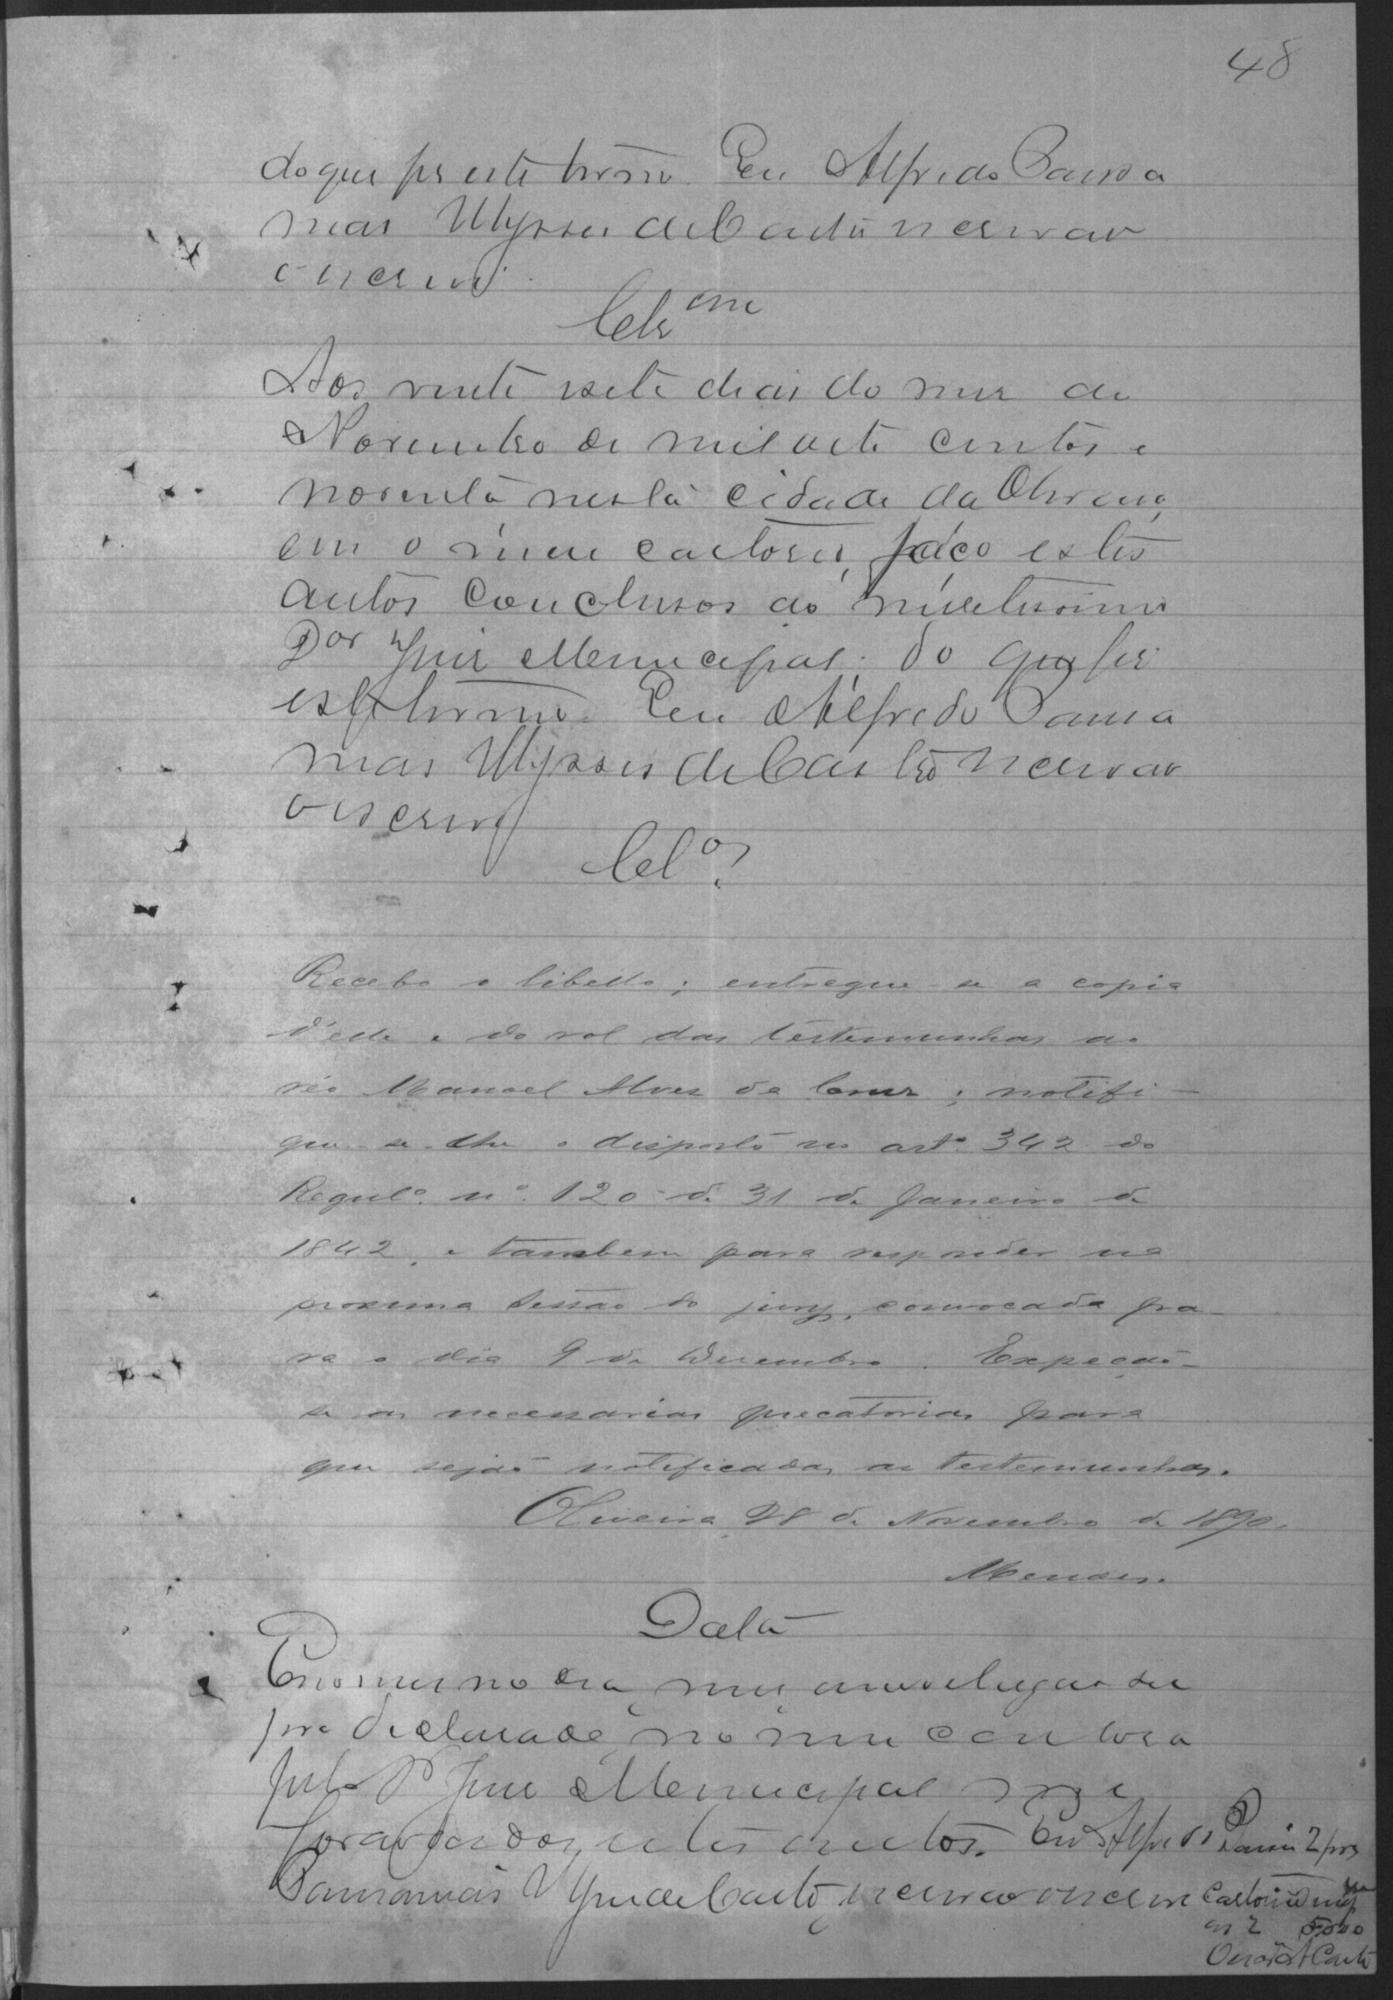 48
do que fiz este termo. Eu Alfredo Parana
mas Ulysses de Castro escrivão
o escrevi.
Cls.am
Aos vinte sete dias do mez de
Novembro de mil oito centos e
noventa nesta cidade da Oliveira,
em o meu cartorio, faço estes
autos conclusos ao meretissimo
Dor Juiz Municipal; do que fiz
este termo. Eu Alfredo Parana
mas Ulysses de Castro escrivão
o escrevi
Clos
Recebo o libello; entregue-se a copia
d'este e do rol das testemunhas ao
réo Manoel Alves da Cruz; notifi-
que-se-lhe o disposto no arto. 342 do
Regulo. no. 120 de 31 de Janeiro de
1842, e tambem para responder na
proxima sessão do jury, convocada pa-
ra o dia 9 de Dezembro. Expeção-
se as necessarias precatorias para
que sejão notificadas as testemunhas.
Oliveira 28 de Novembro de 1890.
Mendes.
Data
E no mesmo dia, mez, anno e lugar su
pra declarado, no meu cartorio
pelo Dr Juiz Municipal me
forão dados estes autos. Eu Alfredo
Paranamás Ulysses de Castro, escrivão o escrevi
Cartorio